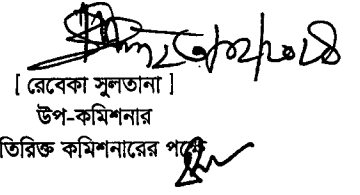 [ রেবেকা সুলতানা ]
উপ-কমিশনার
তিরিক্ত কমিশনারের পক্ষে